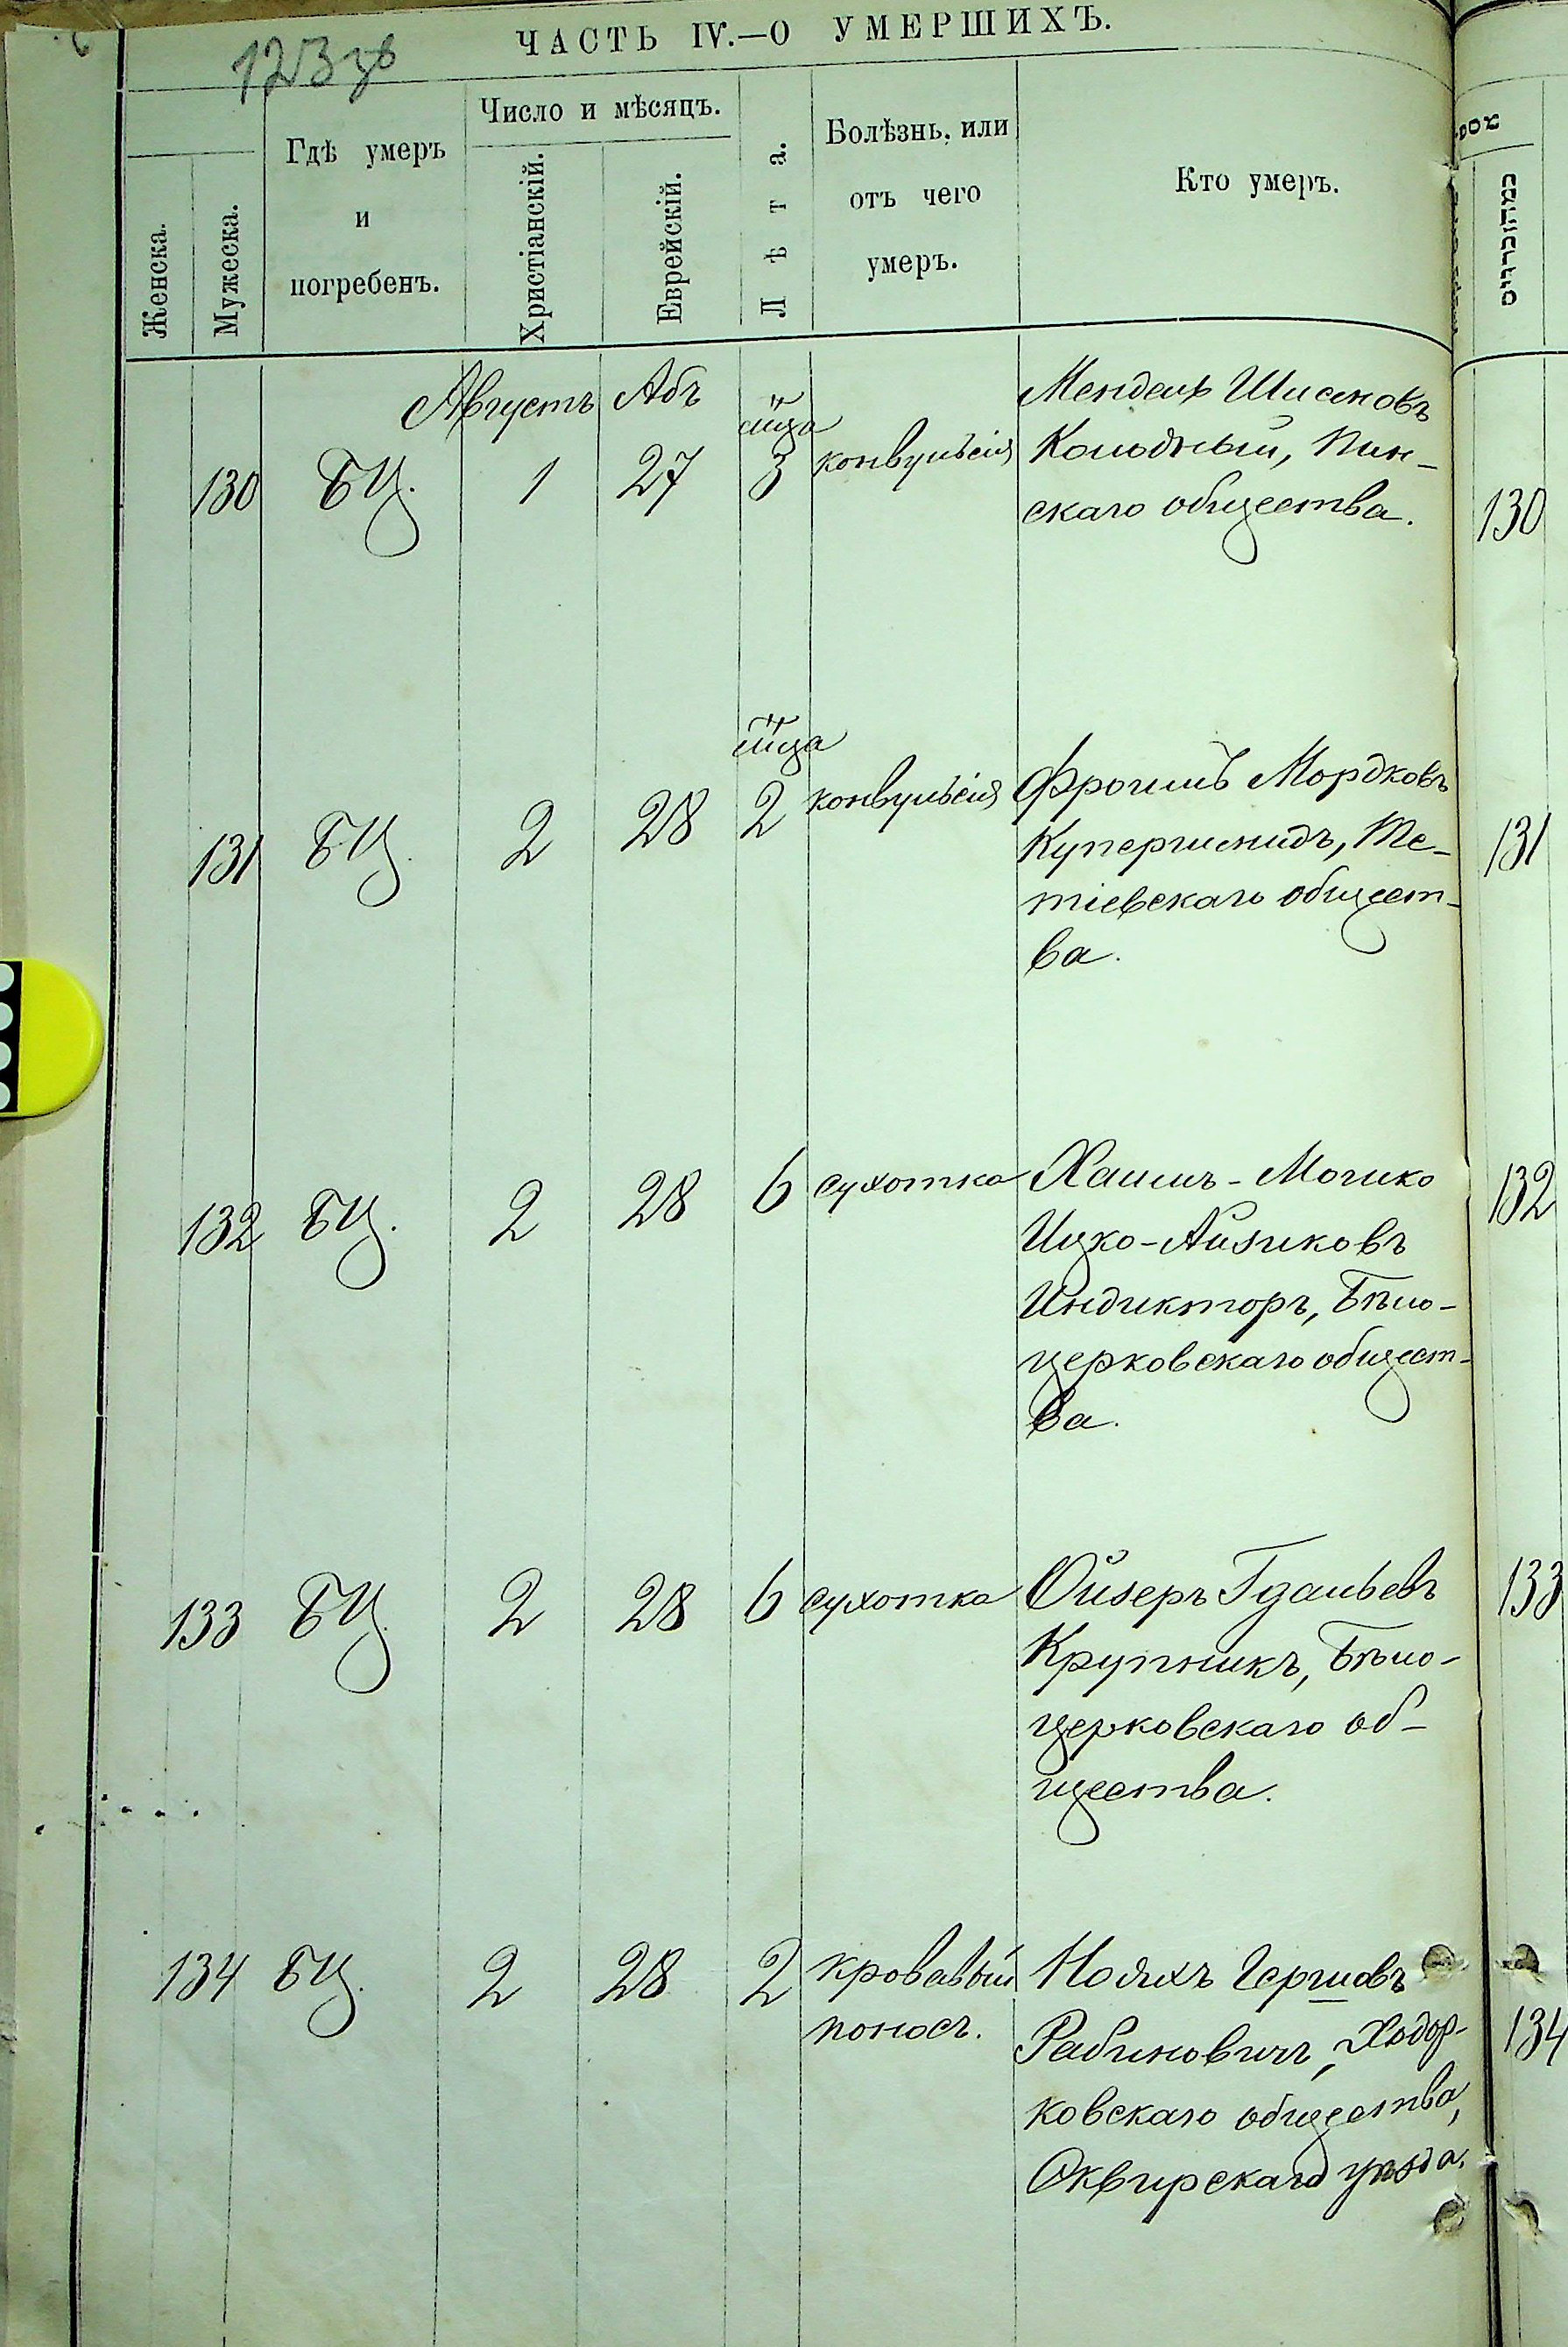 123 об
ЧАСТЬ IV.—О УМЕРШИХЪ.
Женска.
Мужеска.
Гдѣ умеръ
и
погребенъ.
Число и мѣсяцъ.
Христіанскій.
Еврейскій.
Лѣта.
Болѣзнь, или
отъ чего
умеръ.
Кто умеръ.
Августъ Абъ
130 БЦ. 1 27 мца 3 конвульсія Мендель
Колодный, Пин-
скаго общества. 130
131 БЦ. 2 28 мца 2 конвульсія Фроимъ Мордковъ
Купершмидъ, Те-
тіевскаго общест-
ва. 131
132 БЦ. 2 28 6 сухотка Хаимъ-Мошко
Ицко-Айзиковъ
Индикторъ, Бѣло-
церковскаго общест-
ва. 132
133 БЦ. 2 28 6 сухотка Ойзеръ Гдальевъ
Крупникъ, Бѣло-
церковскаго об-
щества. 133
134 БЦ. 2 28 2 кровавый поносъ. Нояхъ Гершовъ
Рабиновичъ, Ходор-
ковскаго общества,
Сквирскаго уѣзда. 134